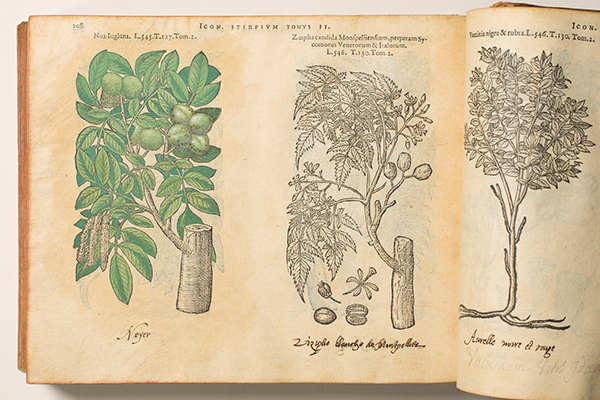 108
ICON. STIRPIUM TOMVS II.
Nux Iuglans. L.545. T.127. Tom. 2.
Zizipha candida Monspelliensium, perperam Sy-
comorus Venetorum & Italorum.
L.546. T.130. Tom. 2.
Noyer
Ziziphe blanche de Montpellier
ICON.
nigra & rubra. L.546. T.130. Tom. 2.
Aurelle noire et rouge